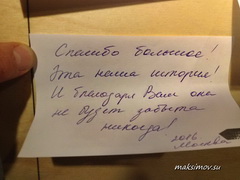 Спасибо большое!
Это наша история!
И благодаря Вам она
не будет забыта
никогда!
2016
Москва
maksimov.su